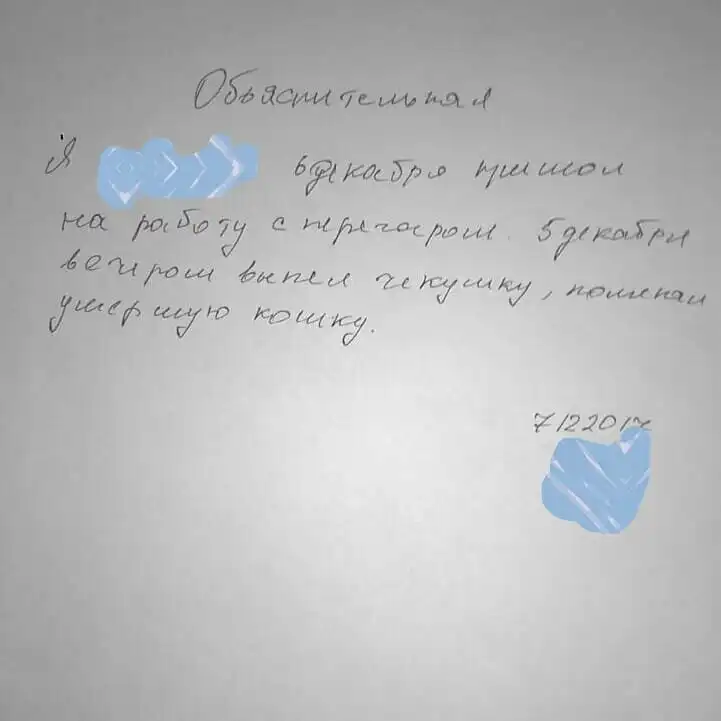 Объяснительная
Я 6 декабря пришол
на работу с перегаром. 5 декабря
вечером выпел чекушку, поминал
умершую кошку.
7 12 2017